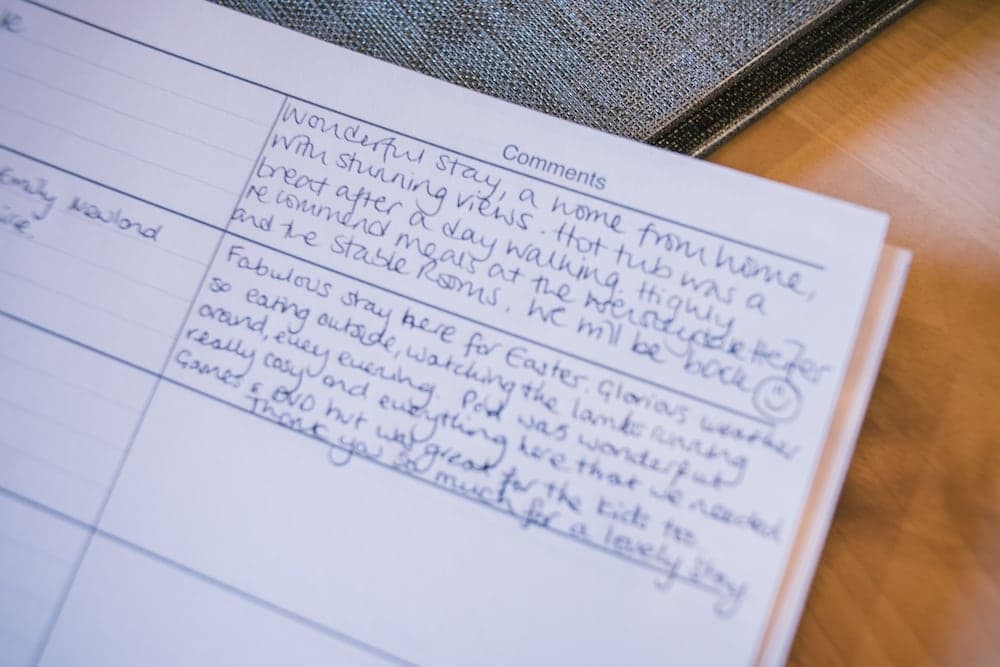 Comments
Wonderful stay, a home from home,
with stunning views. Hot tub was a
treat after a day walking. Highly
recommend meals at the
and the Stable Rooms. We will be back ☺
Emily Newland
Fabulous stay here for Easter. Glorious weather
so eating outside, watching the lambs running
around, every evening. Pod was wonderful
really cosy and everything here that we needed
Games & DVD hut was great for the kids too
Thank you so much for a lovely stay